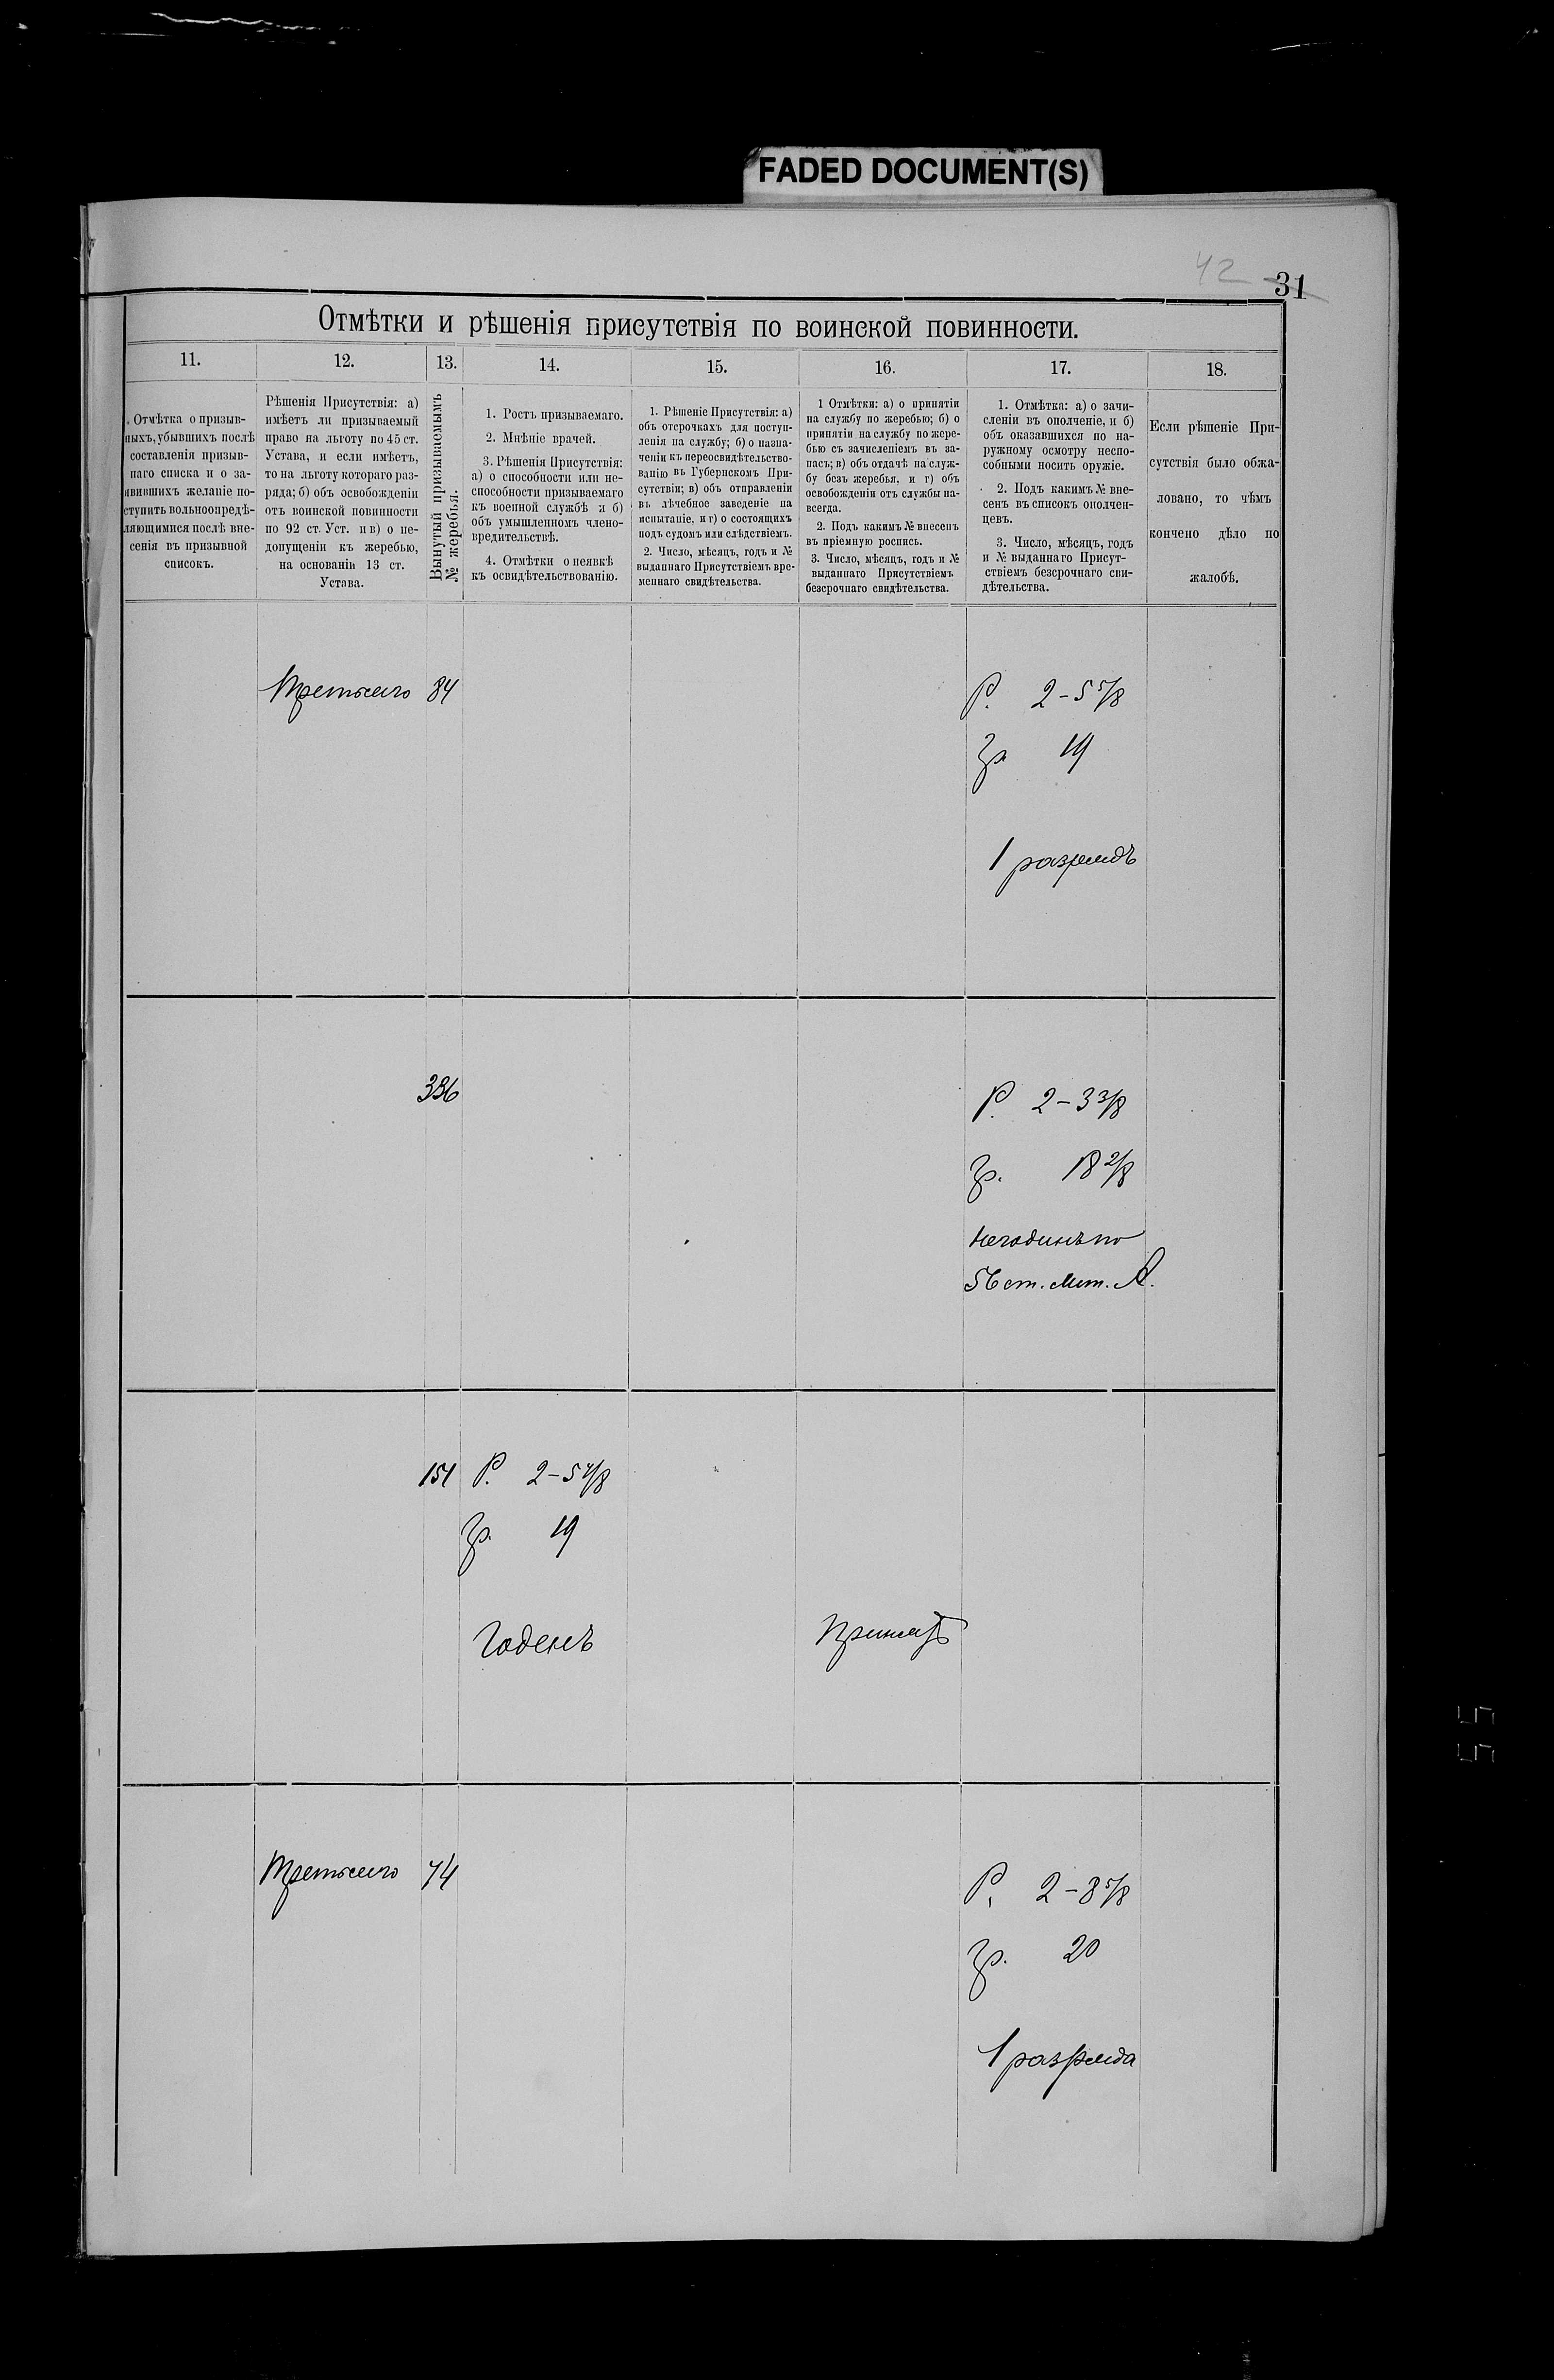 FADED DOCUMENT(S)
42
31
Отмѣтки и рѣшенія присутствія по воинской повинности.
11. 12. 13. 14. 15. 16. 17. 18.
Отмѣтка о призыв-
ныхъ, убывшихъ послѣ
составленія призыв-
наго списка и о за-
явившихъ желаніе по-
ступить вольноопредѣ-
ляющимися послѣ вне-
сенія въ призывной
списокъ.
Рѣшенія Присутствія: а)
имѣетъ ли призываемый
право на льготу по 45 ст.
Устава, и если имѣетъ,
то на льготу котораго раз-
ряда; б) объ освобожденіи
отъ воинской повинности
по 92 ст. Уст. и в) о не-
допущеніи къ жеребью,
на основаніи 13 ст.
Устава.
Вынутый призываемымъ
№ жеребья.
1. Ростъ призываемаго.
2. Мнѣніе врачей.
3. Рѣшенія Присутствія:
а) о способности или не-
способности призываемаго
къ военной службѣ и б)
объ умышленномъ члено-
вредительствѣ.
4. Отмѣтки о неявкѣ
къ освидѣтельствованію.
1. Рѣшеніе Присутствія: а)
объ отсрочкахъ для поступ-
ленія на службу; б) о назна-
ченіи къ переосвидѣтельство-
ванію въ Губернскомъ При-
сутствіи; в) объ отправленіи
въ лѣчебное заведеніе на
испытаніе, и г) о состоящихъ
подъ судомъ или слѣдствіемъ.
2. Число, мѣсяцъ, годъ и №
выданнаго Присутствіемъ вре-
меннаго свидѣтельства.
1 Отмѣтки: а) о принятіи
на службу по жеребью; б) о
принятіи на службу по жере-
бью съ зачисленіемъ въ за-
пасъ; в) объ отдачѣ на служ-
бу безъ жеребья, и г) объ
освобожденіи отъ службы на-
всегда.
2. Подъ какимъ № внесенъ
въ пріемную роспись.
3. Число, мѣсяцъ, годъ и №
выданнаго Присутствіемъ
безсрочнаго свидѣтельства.
1. Отмѣтка: а) о зачи-
сленіи въ ополченіе, и б)
объ оказавшихся по на-
ружному осмотру неспо-
собными носить оружіе.
2. Подъ какимъ № вне-
сенъ въ списокъ ополчен-
цевъ.
3. Число, мѣсяцъ, годъ
и № выданнаго Присут-
ствіемъ безсрочнаго сви-
дѣтельства.
Если рѣшеніе При-
сутствія было обжа-
ловано, то чѣмъ
кончено дѣло по
жалобѣ.
Третьяго 84 Р. 2-5 5/8
Гр. 19
1 разрядъ
336 Р. 2-3 3/8
Гр. 18 2/8
Негоденъ по
56 ст. Лит. А.
151 Р. 2-5 4/8
Гр. 19
Годенъ Принятъ
Третьяго 74 Р. 2-8 5/8
Гр. 20
1 разряда
55